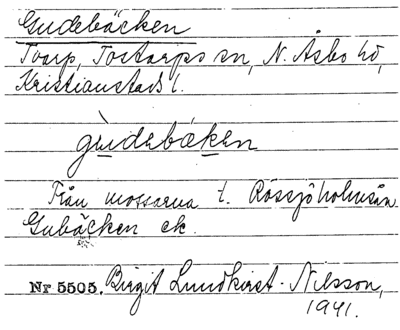 Gudebäcken
Tvarp, Tostarps sn, N. Åsbo hd,
Kristianstads l.
gùdebäken
Från mossarna t. Rössjöholmsån
Gubäcken ek.
Nr 5505. Birgit Lundkvist-Nilsson,
1941.